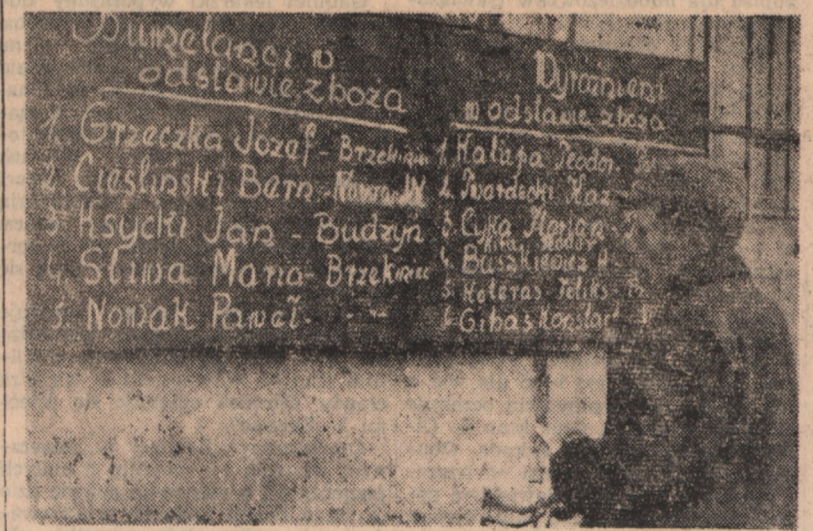 Bumelanci w
odstawie zboża
1. Grzeczka Józef - Brzekiniec
2. Ciesliński Bern -
3. Ksycki Jan - Budzyń
4. Sliwa Maria - Brzekiniec
5. Nowak Paweł - - " -
Wyróżnieni
w odstawie zboża
1. Kałapa Teodor
2. Twardecki Kaz
3. Cyka Florjan
4. Buszkiewicz A
5. Koteras Feliks
6. Gibas Konstan